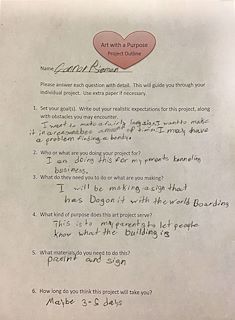 Art with a Purpose
Project Outline
Name Connor
Please answer each question with detail. This will guide you through your
individual project. Use extra paper if necessary.
1. Set your goal(s). Write out your realistic expectations for this project, along
with obstacles you may encounter.
I want to make a fairly large sign I want to make
it in a reasonable amount of time. I may have
a problem finding a
2. Who or what are you doing your project for?
I am doing this for my parents kenneling
business.
3. What do they need you to do or what are you making?
I will be making a sign that
has Dogonit with the world Boarding
4. What kind of purpose does this art project serve?
This is to my parents to let people
know what the building is
5. What materials do you need to do this?
paint and sign
6. How long do you think this project will take you?
Maybe 3-5 days